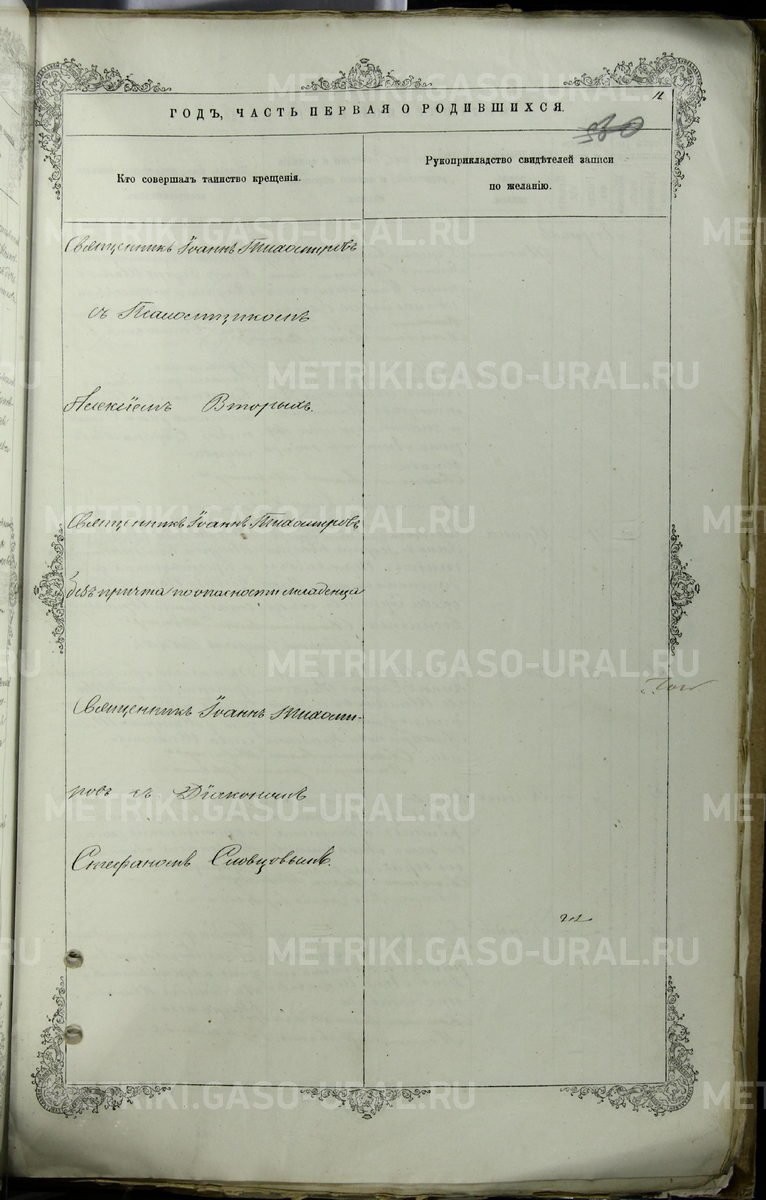 12
ГОДЪ, ЧАСТЬ ПЕРВАЯ О РОДИВШИХСЯ.
580
Кто совершалъ таинство крещенія.
Рукоприкладство свидѣтелей записи
по желанію.
Священникъ Іоаннъ Тихомировъ
съ Псаломщикомъ
Алексіемъ Вторыхъ.
Священникъ Іоаннъ Тихомировъ
безъ причта по опасности младенца
Священникъ Іоаннъ Тихоми-
ровъ съ Діакономъ
Стефаномъ Словцовымъ.
METRIKI.GASO-URAL.RU